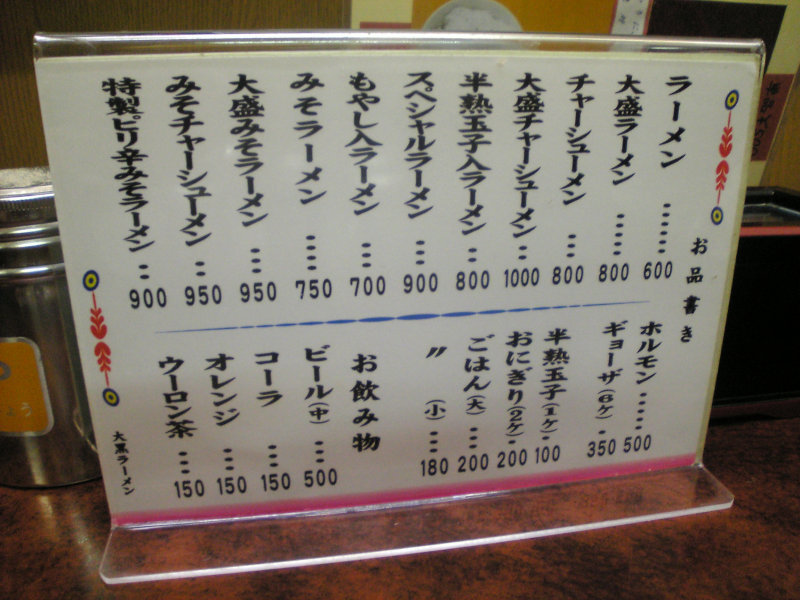 お品書き
ラーメン……600
大盛ラーメン……800
チャーシューメン…800
大盛チャーシューメン…1000
半熟玉子入ラーメン…800
スペシャルラーメン…900
もやし入ラーメン…700
みそラーメン……750
大盛みそラーメン…950
みそチャーシューメン…950
特製ピリ辛みそラーメン…900
ホルモン……500
ギョーザ(6ケ)…350
半熟玉子(1ケ)…100
おにぎり(2ケ)…200
ごはん(大)…200
〃(小)…180
お飲み物
ビール(中)…500
コーラ…150
オレンジ…150
ウーロン茶…150
大黒ラーメン